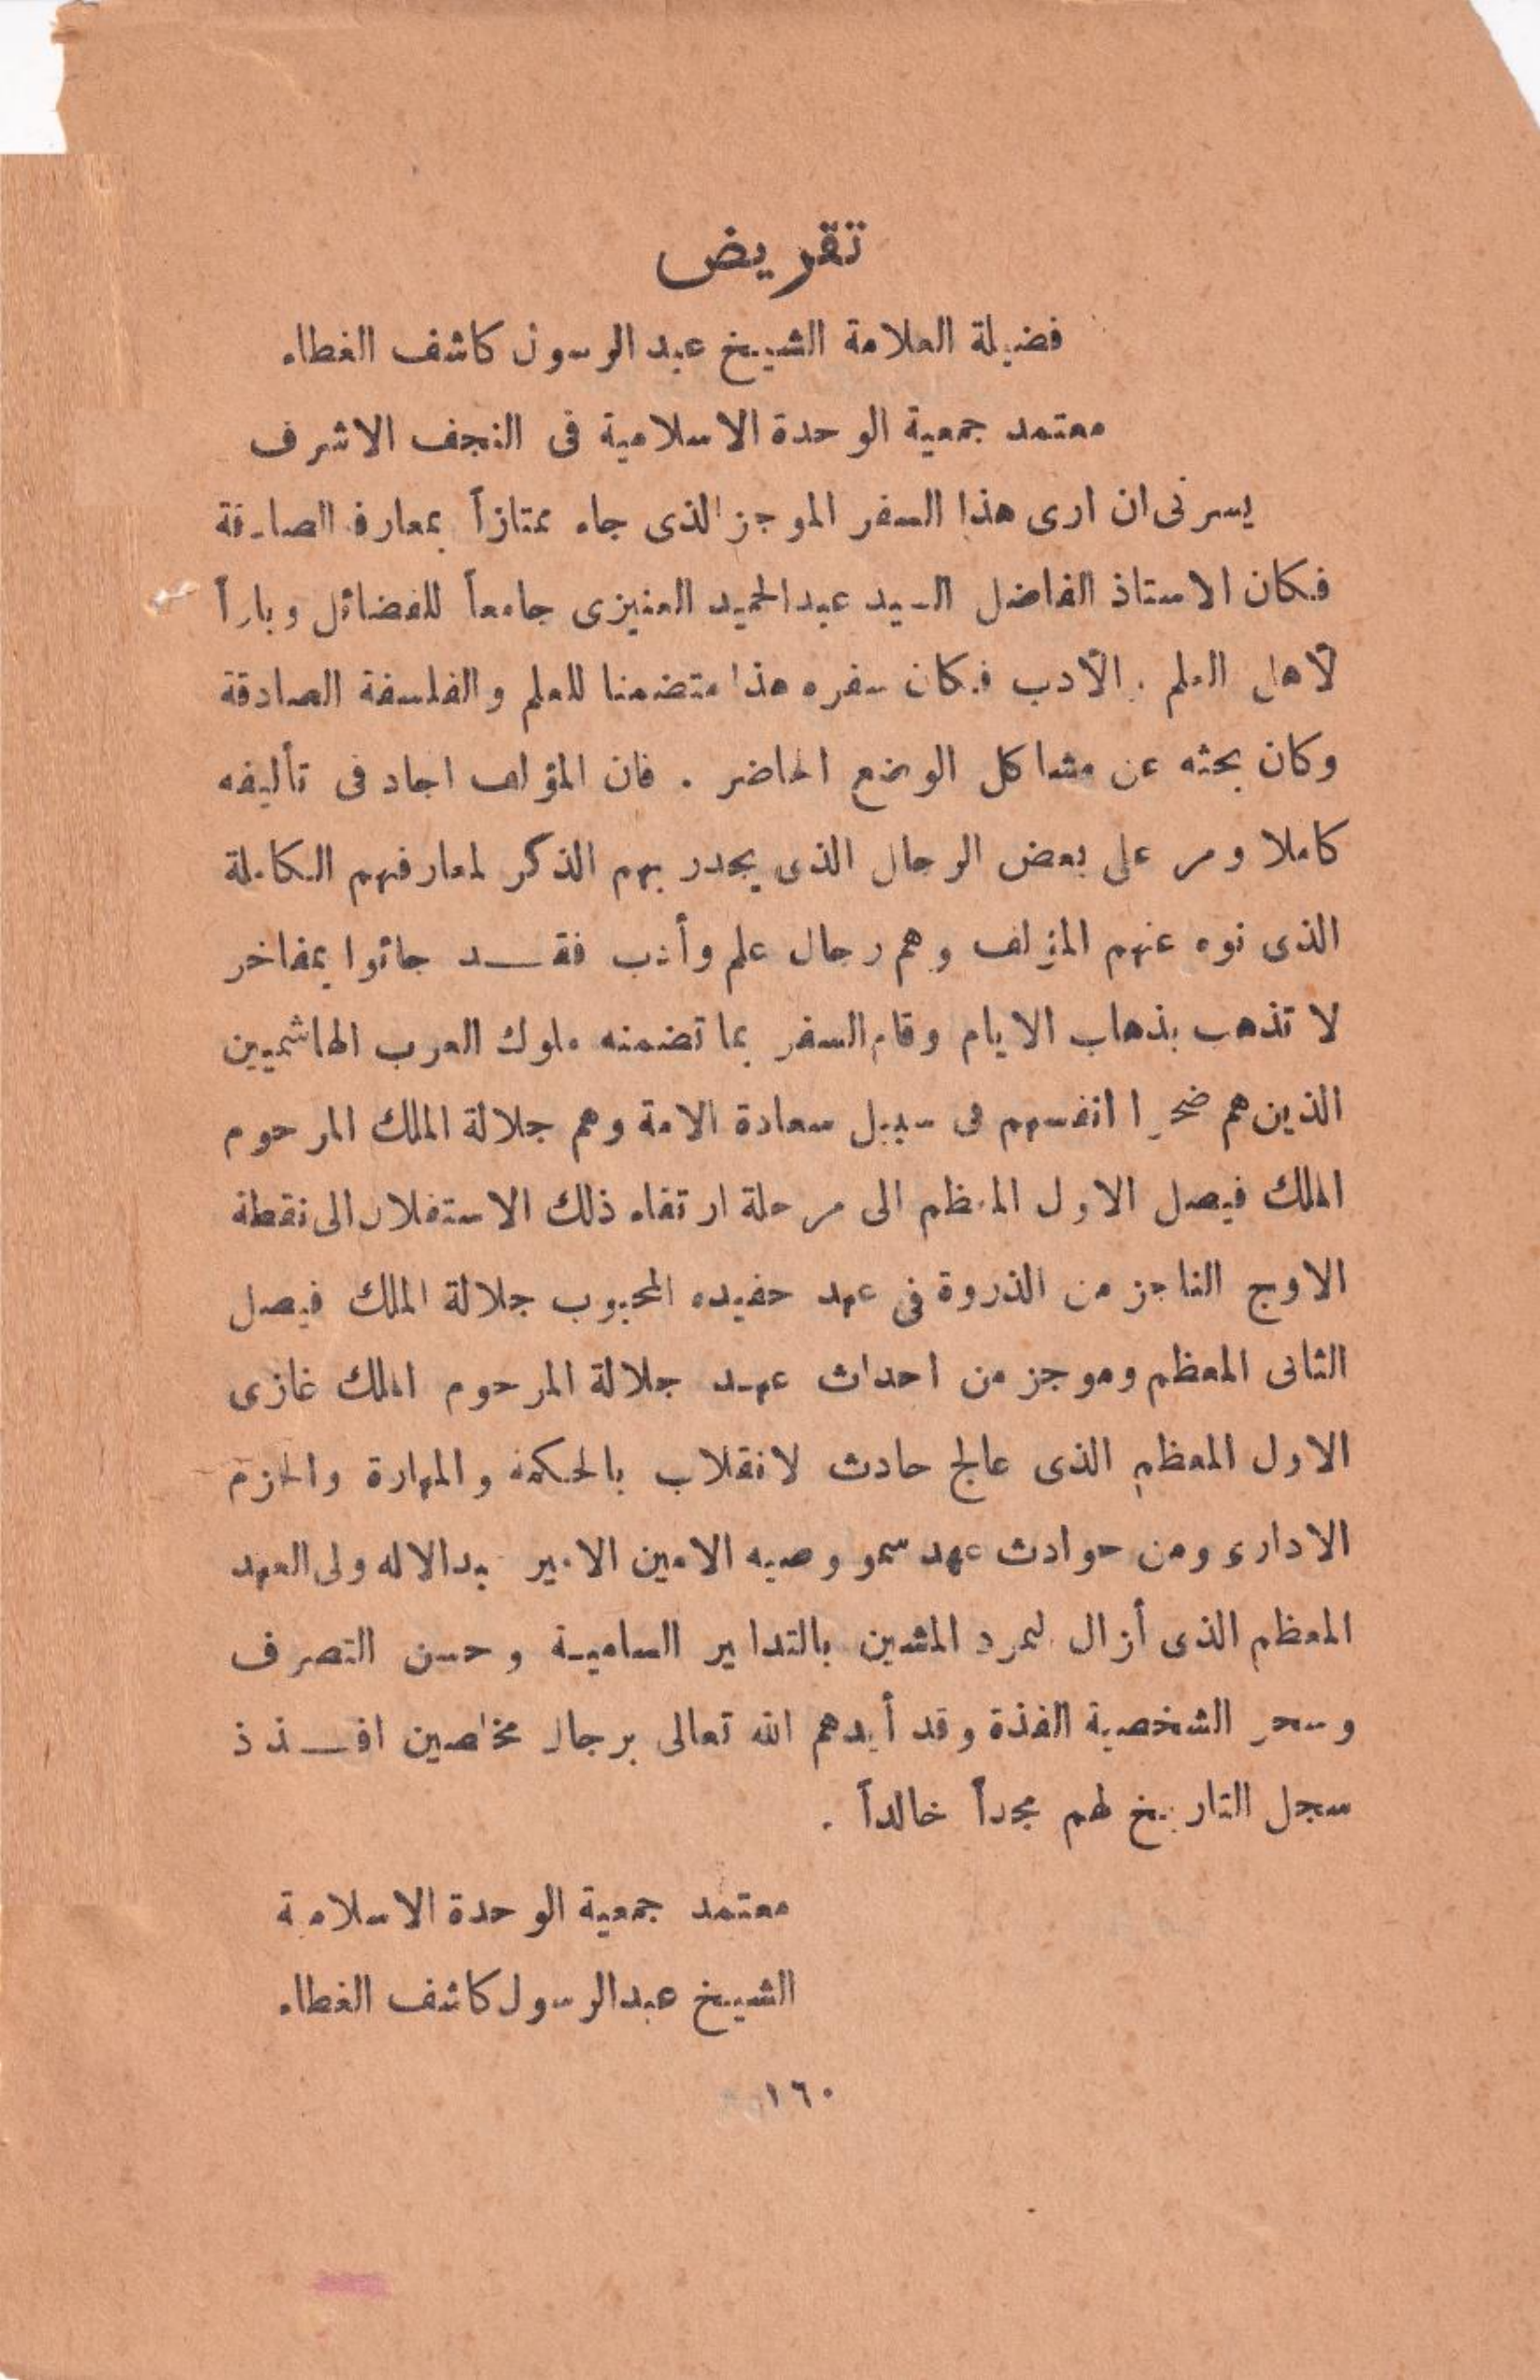 تقريض
فضيلة العلامة الشيخ عبد الرسول كاشف الغطاء
معتمد جمعية الوحدة الاسلامية فى النجف الاشرف
يسرنى ان ارى هذا السفر الموجز الذى جاء ممتازاً بمعارفه الصادقة
فكان الاستاذ الفاضل السيد عبد الحميد العنيزى جامعاً للفضائل وباراً
لأهل العلم والأدب فكان سفره هذا متضمنا للعلم والفلسفة الصادقة
وكان بحثه عن مشاكل الوضع الحاضر . فان المؤلف اجاد فى تأليفه
كاملا ومر على بعض الرجال الذى يجدر بهم الذكر لمعارفهم الكاملة
الذى نوه عنهم المؤلف وهم رجال علم وأدب فقــد جائوا بمفاخر
لا تذهب بذهاب الايام وقام السفر بما تضمنه ملوك العرب الهاشميين
الذين هم ضحوا انفسهم فى سبيل سعادة الامة وهم جلالة الملك المرحوم
الملك فيصل الاول المعظم الى مرحلة ارتقاء ذلك الاستقلال الى نقطة
الاوج الناجز من الذروة فى عهد حفيده المحبوب جلالة الملك فيصل
الثانى المعظم وموجز من احداث عهد جلالة المرحوم الملك غازى
الاول المعظم الذى عالج حادث لانقلاب بالحكمة والمهارة والحزم
الادارى ومن حوادث عهد سمو وصيه الامين الامير عبد الاله ولى العهد
المعظم الذى أزال تمرد المشين بالتدابير السامية وحسن التصرف
وسحر الشخصية الفذة وقد أيدهم الله تعالى برجال مخلصين افــذذ
سجل التاريخ لهم مجداً خالداً .
معتمد جمعية الوحدة الاسلامية
الشيخ عبد الرسول كاشف الغطاء
١٦٠